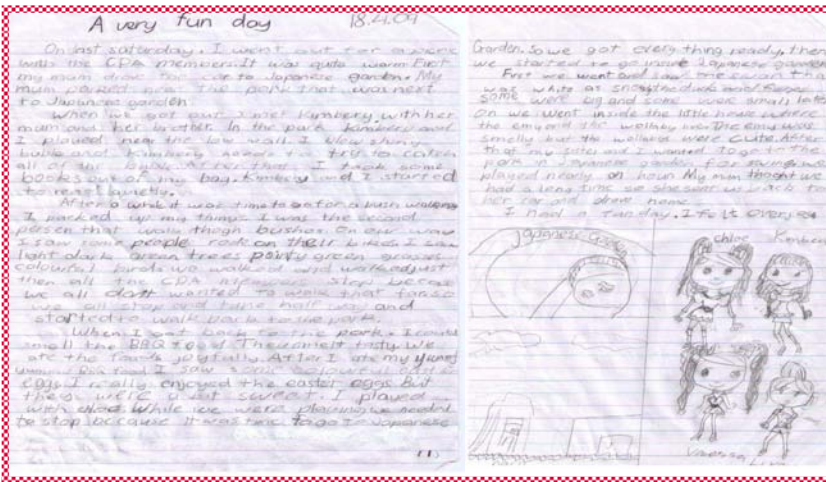 A very fun day 18.4.09
On last saterday. I went out for a
with the CPA members. It was quite warm. First
my mum drove the car to Japanese garden. My
mum parked near the park that was next
to Japanese garden.
When we got out I met Kimbery with her
mum and her brother. In the park Kimbery and
I played near the low wall. I blew shiny
and Kimbery to try to catch
all of the I took some
books out of my bag. Kimbery and I started
to read quietly.
After a while it was time to go for a bush walking
I packed up my things. I was the second
persen that walk thogh bushes. On our way
I saw some people rode on their bikes I saw
light dark green trees green grasses
colourful birds we walked and walked just
then all the CPA stop becose
we all don't wanted to walk that far so
we all stop half way and
started to walk back to the park.
When I got back to the park. I could
smell the BBQ food They smelt tasty We
ate the foods joyfully. After I ate my yummy
BBQ food I saw some colourful easter
eggs I really enjoyed the easter eggs But
they were a bit sweet. I played
with chloe While we were playing we needed
to stop because it was time to go to Japanese
(1)
Garden. So we got every thing ready, then
we started to go inside Japanese garden
First we went and saw one swan tha
was white as snow the ducks and
some were big and some were small late
on we went inside the little house where
the emy and the wallaby The emy was
smelly but the wallabys were cute. After
that my sister and I wanted to go to the
park in Japanese garden for swings we
played nearly an hour My mum thoght we
had a long time so she sent us back to
her car and drove home.
I had a fun day. I felt
Japanese Garden
Chloe
Kimber
Vanessa